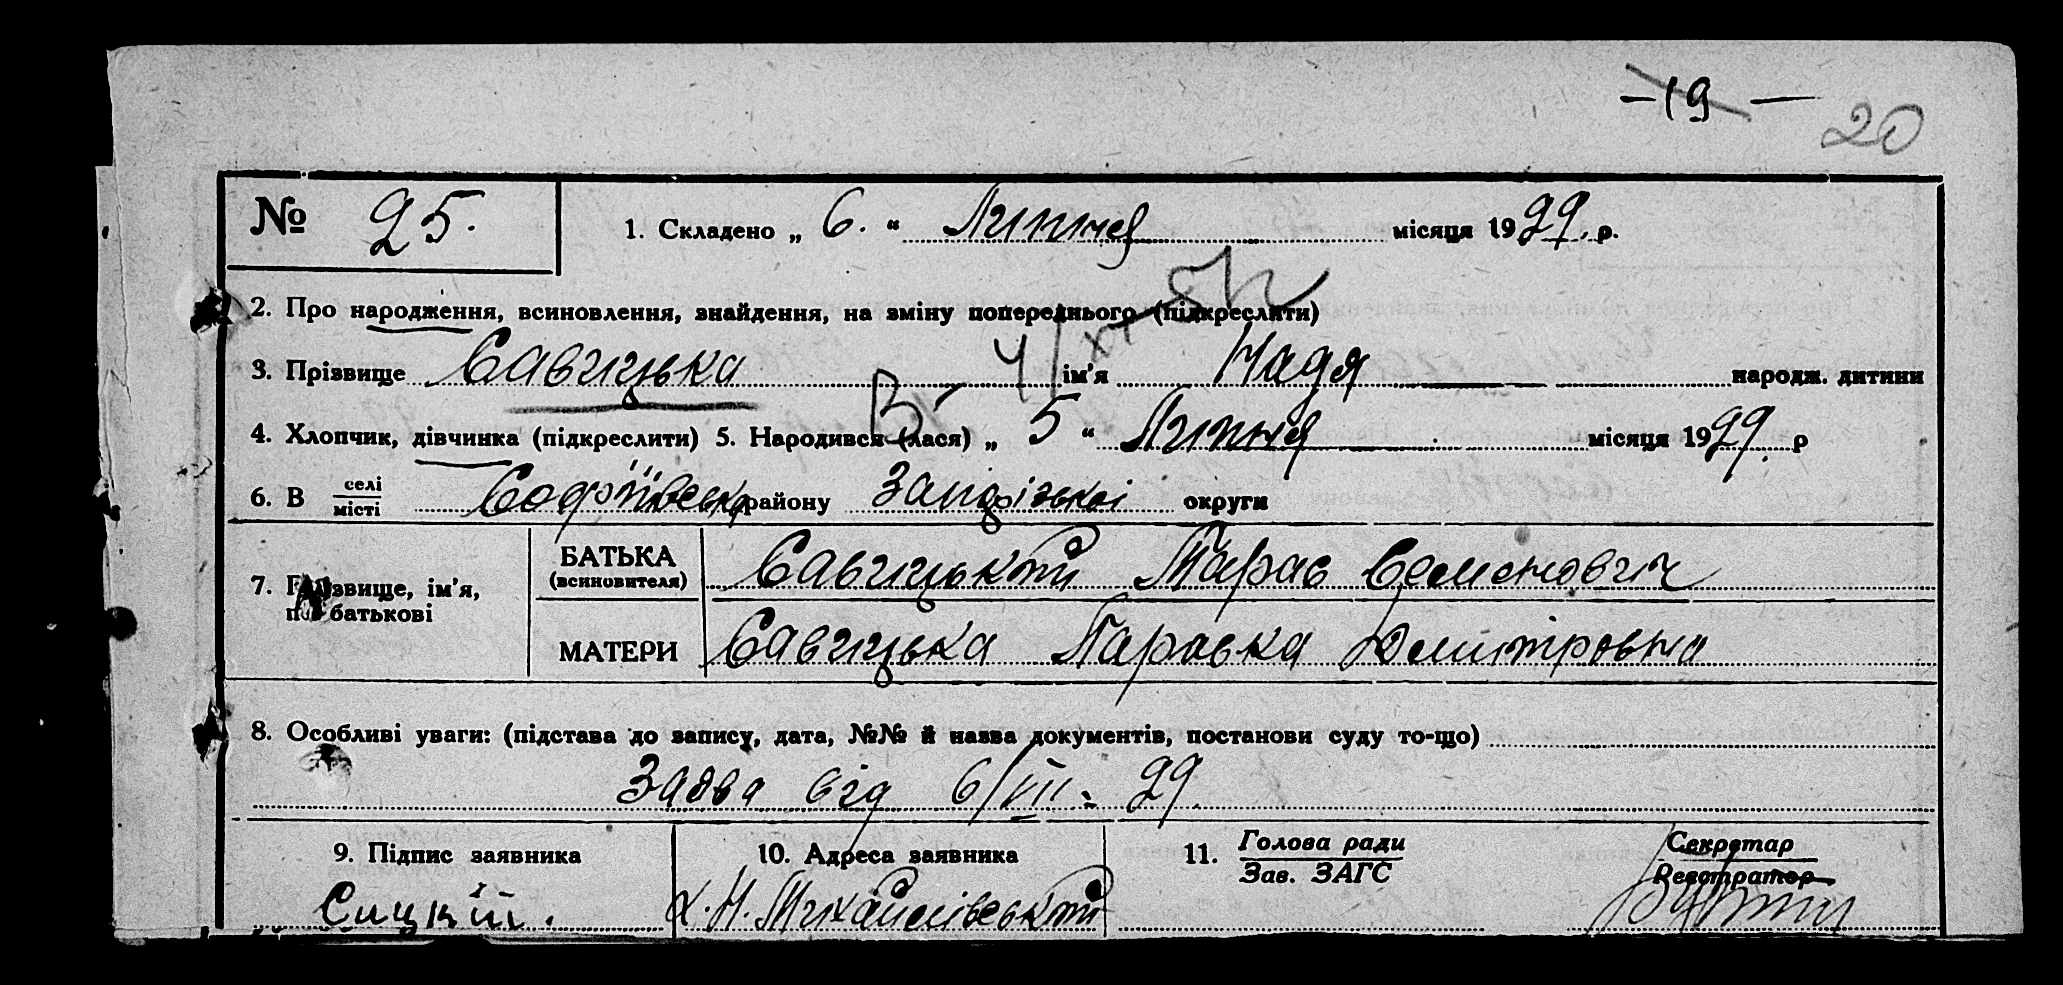 –19–
20
№ 25.
1. Складено „ 6. “ Липня місяця 1929. р.
2. Про народження, всиновлення, знайдення, на зміну попереднього (підкреслити)
3. Прізвище Савицька ім'я Надя народж. дитини
4. Хлопчик, дівчинка (підкреслити) 5. Народився (лася) „ 5 “ Липня місяця 1929. р
6. В селі місті Софіївська району Запорізької округи
7. Прізвище, ім'я, по батькові
БАТЬКА (всиновителя) Савицький Тарас Семенович
МАТЕРИ Савицька Параска Дмитровна
8. Особливі уваги: (підстава до запису, дата, №№ й назва документів, постанови суду то-що)
Заява від 6/VII- 29.
9. Підпис заявника
10. Адреса заявника
11. Голова ради Зав. ЗАГС
Секретар Реєстратор
х. Н. Михайлівський